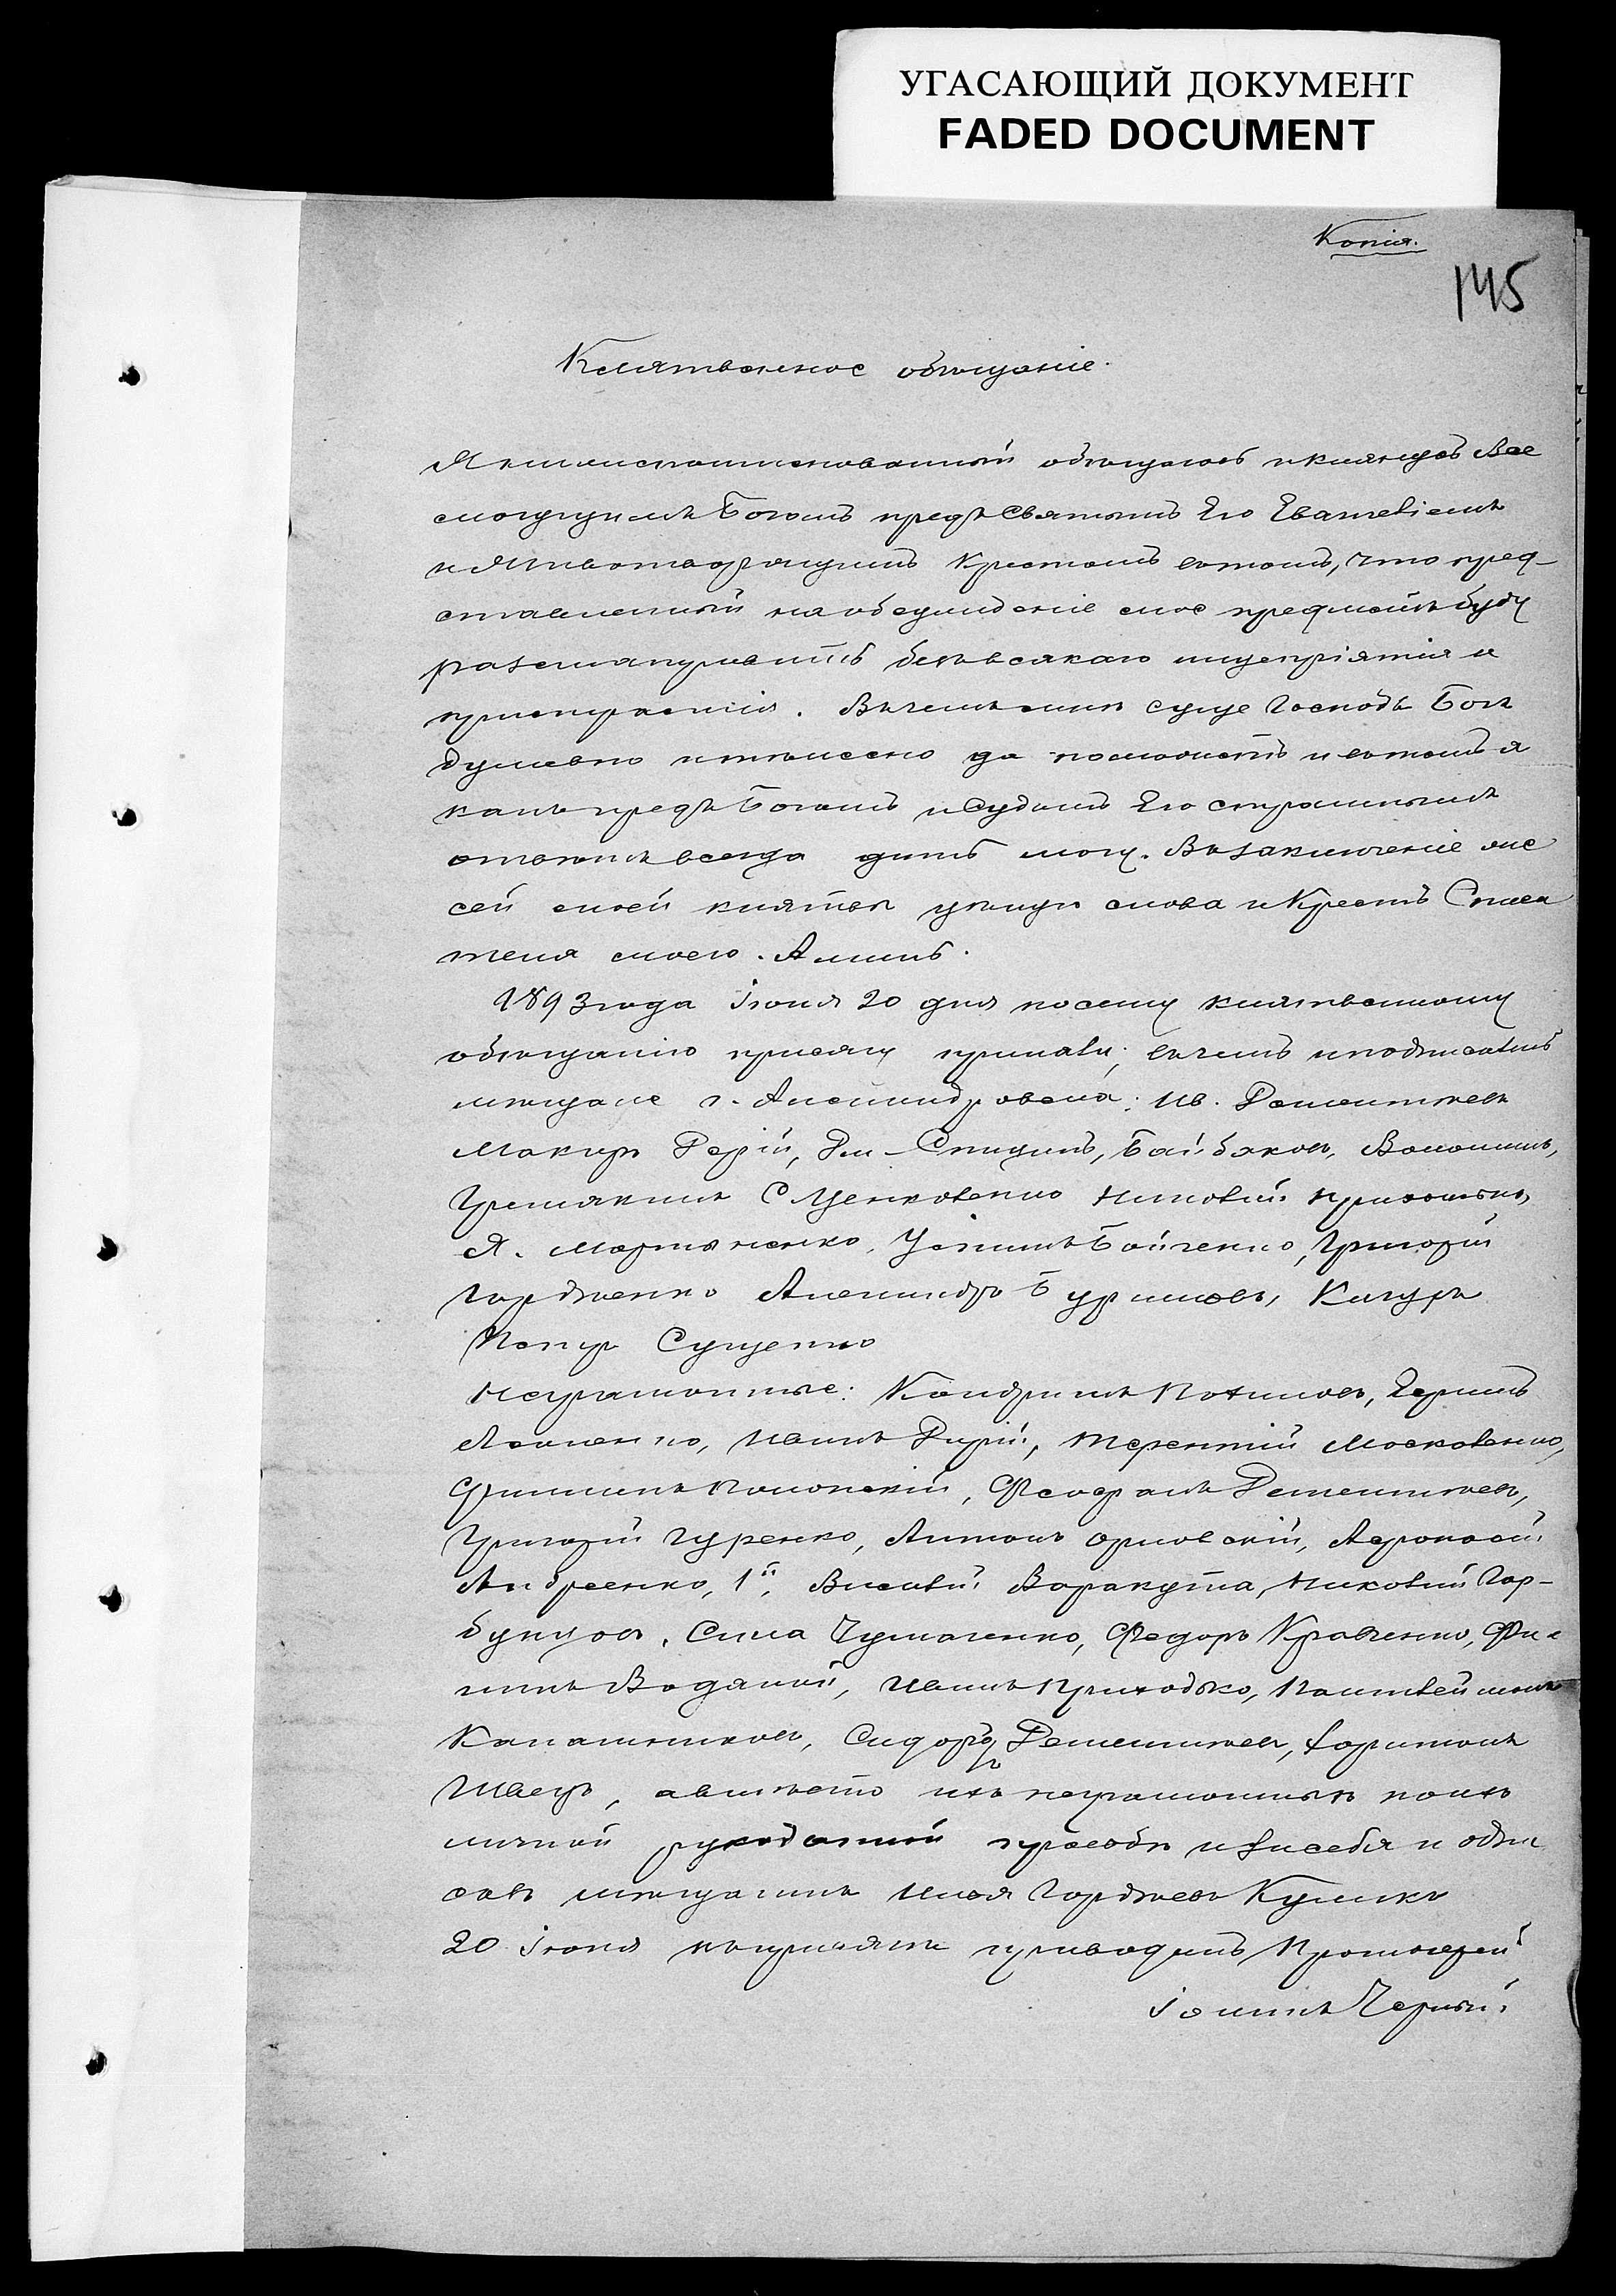 УГАСАЮЩИЙ ДОКУМЕНТ
FADED DOCUMENT
Копія.
145
Клятвенное обѣщаніе.
Я нижепоименованный обѣщаюсь и клянусь Все
могущимъ Богомъ предъ Святымъ Его Евангеліемъ
и Животворящимъ Крестомъ въ томъ, что пред-
ставленный на обсужденіе мое предметъ буду
разсматривать безъ всякаго лицепріятія и
пристрастія. Въ чемъ мнѣ суще Господь Богъ
душевно и тѣлесно да поможетъ и въ томъ я
какъ предъ Богомъ и Судомъ Его страшнымъ
отвѣтъ всегда дать могу. Въ заключеніе же
сей моей клятвы цѣлую слова и Крестъ Спаси
теля моего. Аминь.
1893 года іюня 20 дня по сему клятвенному
обѣщанію присягу принявъ, въ чемъ и подписались
мѣщане г. Александровска: Ив. Дементьевъ
Макаръ Рарій, Спицынъ, Байбаковъ, Волошинъ,
С Ценковенко
Я. Мартыненко, Бойченко, Григорій
Гордѣенко Александръ Бурлаковъ,
Петръ Сущенко
Неграмотные: Кондратъ Потаповъ,
Иванъ Терентій Московенко,
Филиппъ Полонскій, Дементьевъ,
Григорій Гуренко, Антонъ Орловскій, Афонасій
Андреенко, 1й, Василій Варакута, Николай Гор-
бунцовъ, Сила Чумаченко, Федоръ Кравченко, Фи-
липъ Водяной, Иванъ Приходько,
Сидоръ Дементьевъ, Харитонъ
Швецъ, а вмѣсто ихъ неграмотныхъ по ихъ
личной рукоданной просьбѣ и за себя подпи
салъ мѣщанинъ Илья Гордѣевъ Куликъ
20 іюня къ присягѣ приводилъ Протоіерей
Іоаннъ Черный.